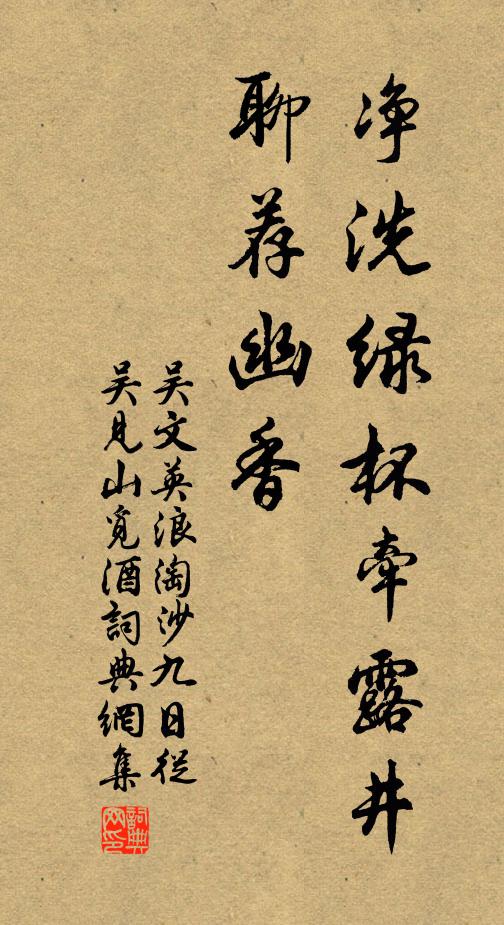 净洗绿杯牵露井
聊荐幽香
吴文英浪淘沙九日从
吴见山觅酒词典网集
词典网印